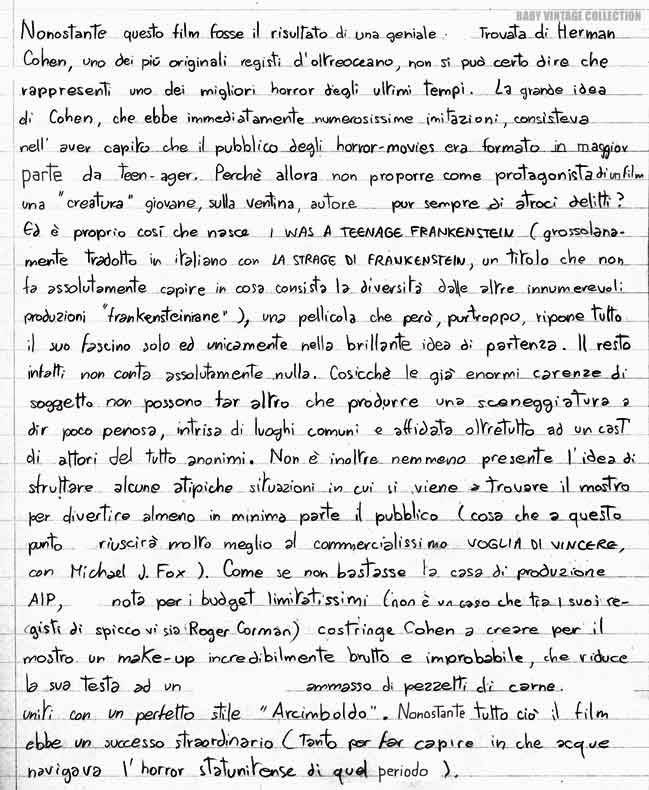 BABY VINTAGE COLLECTION
Nonostante questo film fosse il risultato di una geniale Trovata di Herman
Cohen, uno dei più originali registi d'oltreoceano, non si può certo dire che
rappresenti uno dei migliori horror degli ultimi tempi. La grande idea
di Cohen, che ebbe immediatamente numerosissime imitazioni, consisteva
nell' aver capito che il pubblico degli horror-movies era formato in maggior
parte da teen-ager. Perchè allora non proporre come protagonista di un film
una "creatura" giovane, sulla ventina, autore pur sempre di atroci delitti?
Ed è proprio così che nasce I WAS A TEENAGE FRANKENSTEIN (grossolana-
mente tradotto in italiano con LA STRAGE DI FRANKENSTEIN, un titolo che non
fa assolutamente capire in cosa consista la diversità dalle altre innumerevoli
produzioni "frankensteiniane"), una pellicola che però, purtroppo, ripone tutto
il suo fascino solo ed unicamente nella brillante idea di partenza. Il resto
infatti non conta assolutamente nulla. Cosicchè le già enormi carenze di
soggetto non possono far altro che produrre una sceneggiatura a
dir poco penosa, intrisa di luoghi comuni e affidata oltretutto ad un cast
di attori del tutto anonimi. Non è inoltre nemmeno presente l'idea di
sfruttare alcune atipiche situazioni in cui si viene a trovare il mostro
per divertire almeno in minima parte il pubblico (cosa che a questo
punto riuscirà molto meglio al commercialissimo VOGLIA DI VINCERE,
con Michael J. Fox). Come se non bastasse la casa di produzione
AIP, nota per i budget limitatissimi (non è un caso che tra i suoi re-
gisti di spicco vi sia Roger Corman) costringe Cohen a creare per il
mostro un make-up incredibilmente brutto e improbabile, che riduce
la sua testa ad un ammasso di pezzetti di carne.
uniti con un perfetto stile "Arcimboldo". Nonostante tutto ciò il film
ebbe un successo straordinario (Tanto per far capire in che acque
navigava l'horror statunitense di quel periodo).